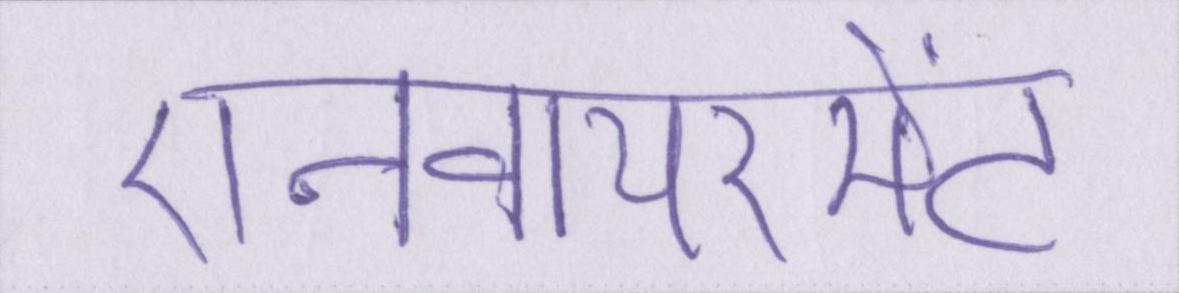 एनवायरमेंट